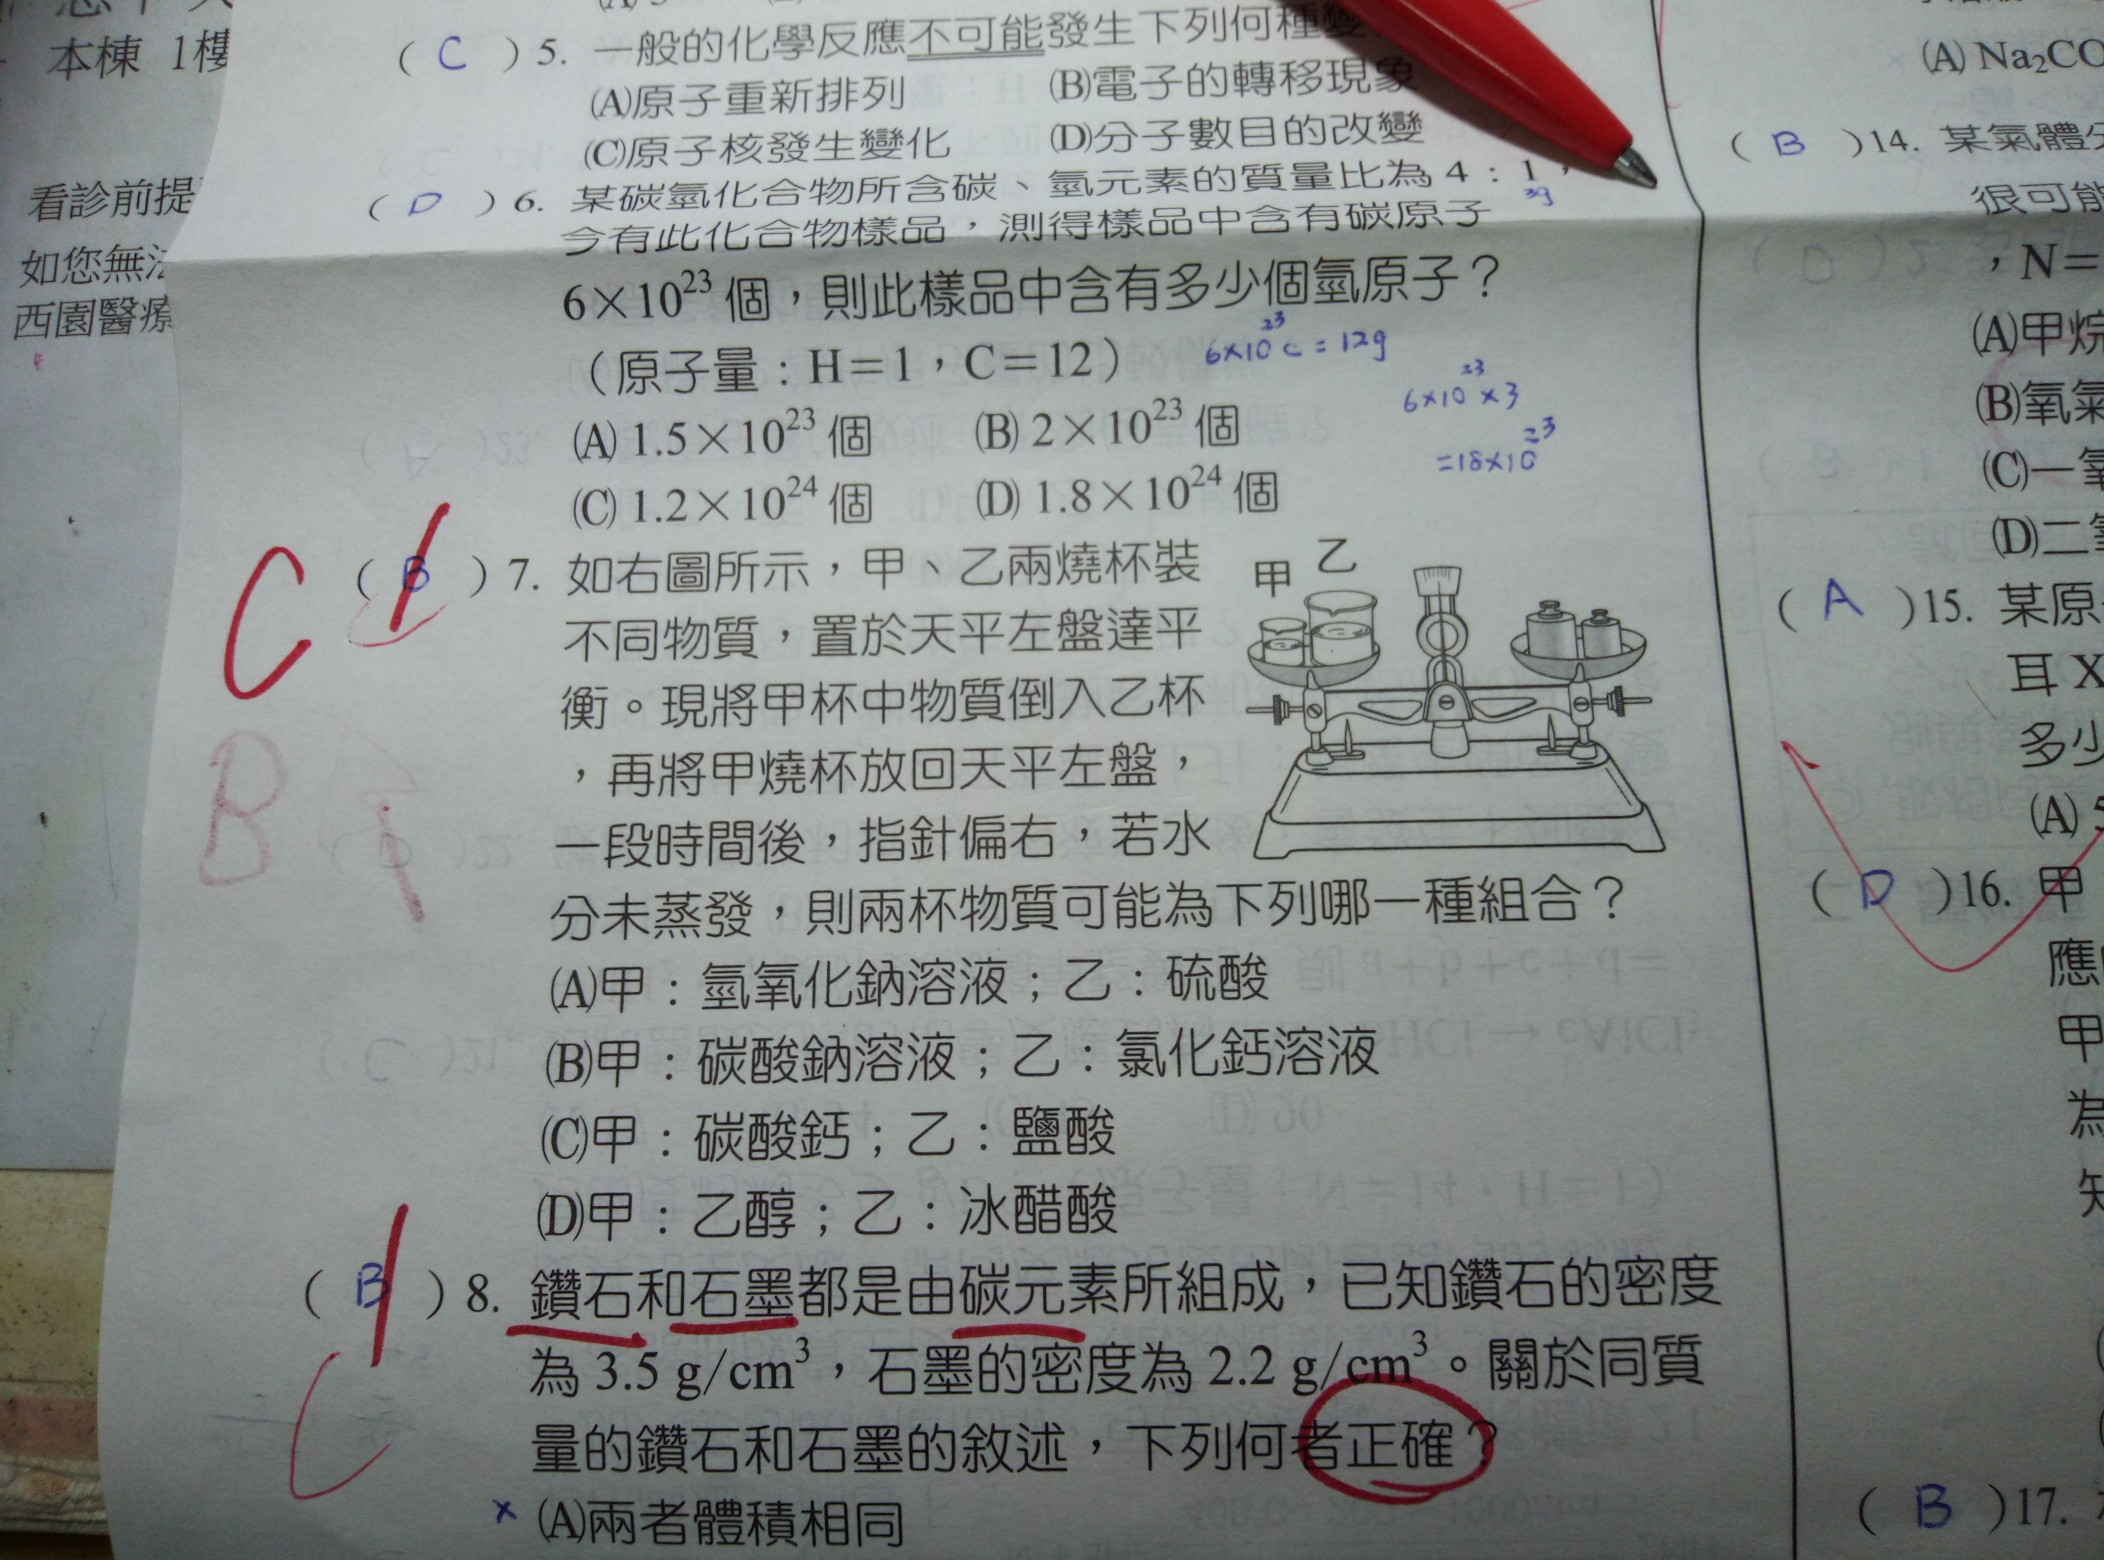 本棟 1樓
看診前提
如您無法
西園醫療
( C ) 5. 一般的化學反應不可能發生下列何種變
(A)原子重新排列 (B)電子的轉移現象
(C)原子核發生變化 (D)分子數目的改變
( D ) 6. 某碳氫化合物所含碳、氫元素的質量比為 4:1,
3g
今有此化合物樣品,測得樣品中含有碳原子
6×10²³ 個,則此樣品中含有多少個氫原子?
(原子量:H=1,C=12)
6×10²³ C = 12g
6×10²³ ×3
=18×10²³
(A) 1.5×10²³ 個 (B) 2×10²³ 個
(C) 1.2×10²⁴ 個 (D) 1.8×10²⁴ 個
C
B
( B ) 7. 如右圖所示,甲、乙兩燒杯裝
不同物質,置於天平左盤達平
衡。現將甲杯中物質倒入乙杯
,再將甲燒杯放回天平左盤,
一段時間後,指針偏右,若水
分未蒸發,則兩杯物質可能為下列哪一種組合?
甲 乙
(A)甲:氫氧化鈉溶液;乙:硫酸
(B)甲:碳酸鈉溶液;乙:氯化鈣溶液
(C)甲:碳酸鈣;乙:鹽酸
(D)甲:乙醇;乙:冰醋酸
( B ) 8. 鑽石和石墨都是由碳元素所組成,已知鑽石的密度
C
為 3.5 g/cm³,石墨的密度為 2.2 g/cm³。關於同質
量的鑽石和石墨的敘述,下列何者正確?
× (A)兩者體積相同
(A) Na₂CO
( B )14. 某氣體分
很可能
,N=
(A)甲烷
(B)氧氣
(C)一氧
(D)二氧
( A )15. 某原
耳 X
多少
(A) 5
( D )16. 甲
應
甲
為
知
( B )17.